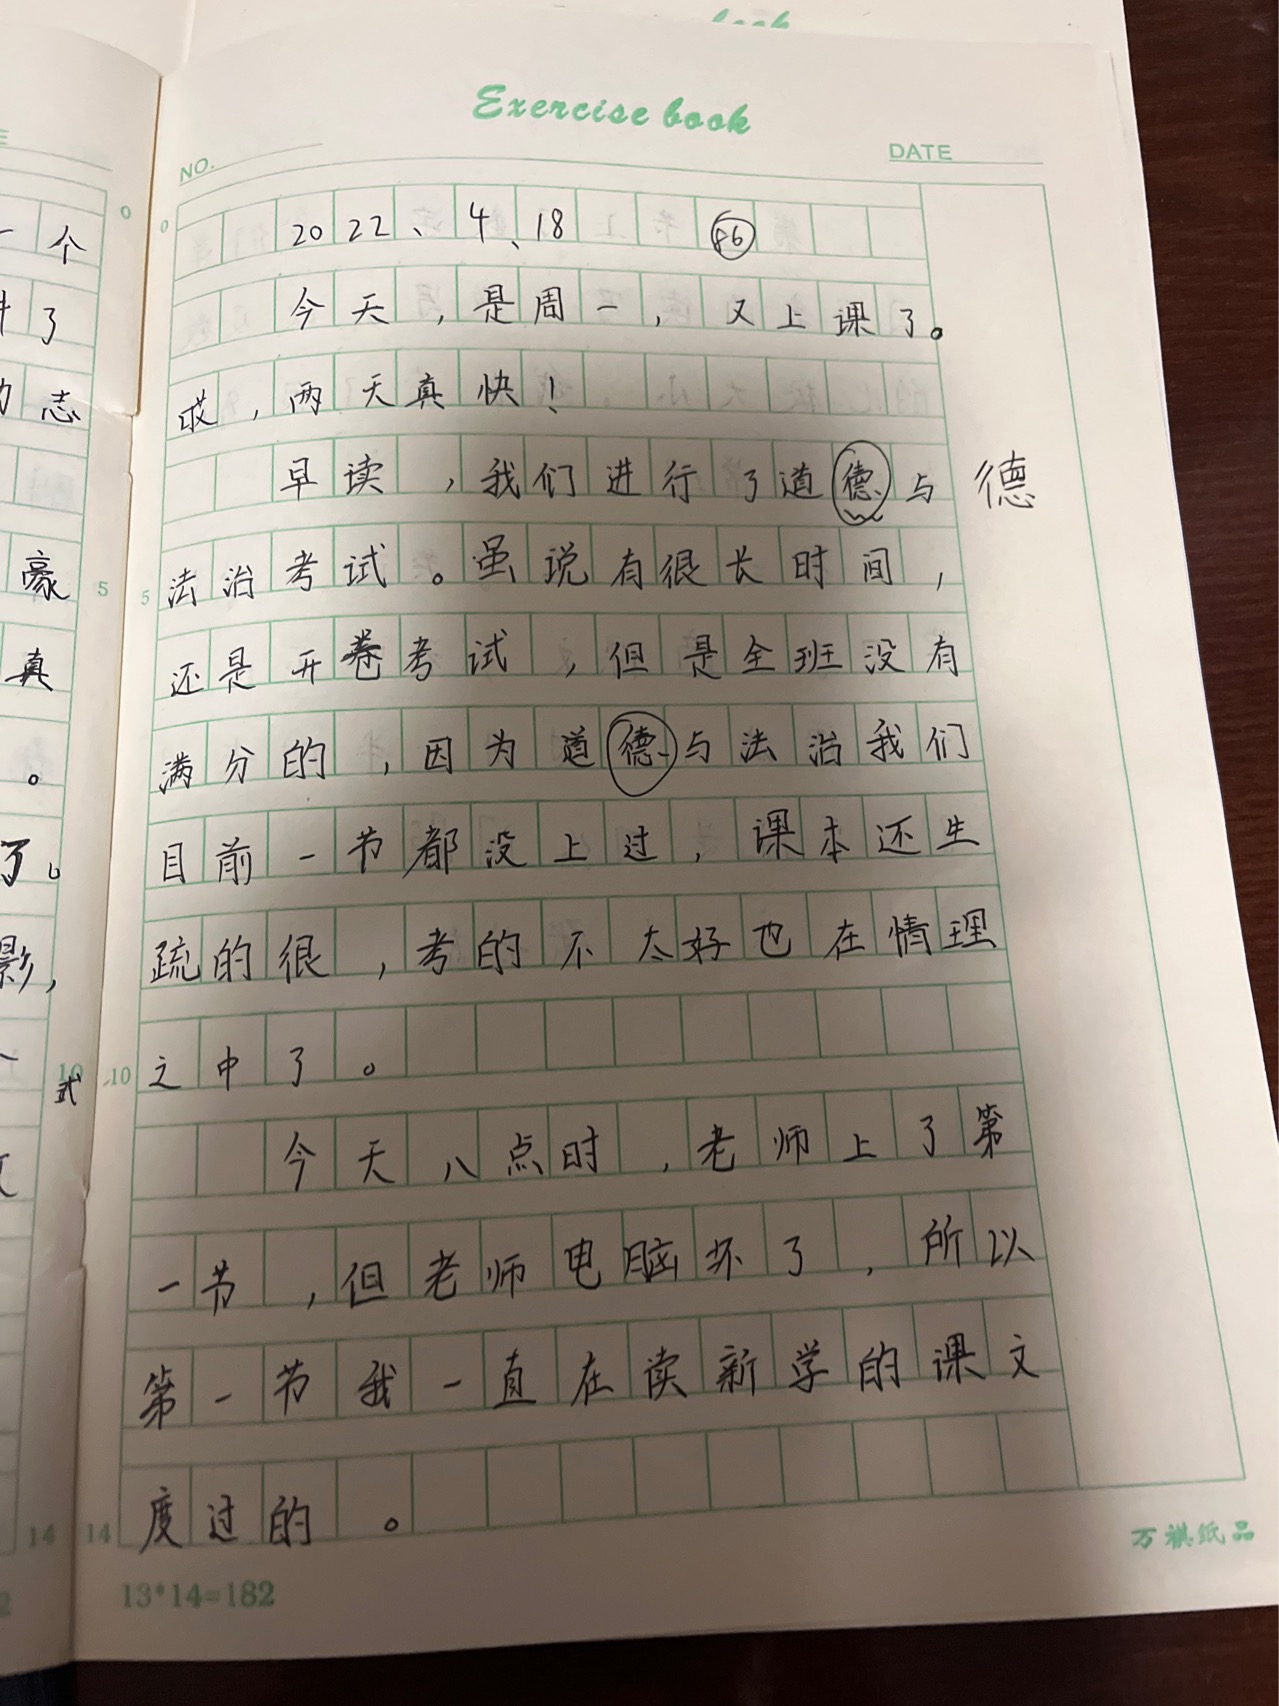 book
Exercise book
NO.
DATE
一个
了
志
豪
真
。
了。
影,
式
0
5
10
14
0
5
10
14
2022、4、18 86
今天,是周一,又上课了。
哎,两天真快!
早读,我们进行了道德与 德
法治考试。虽说有很长时间,
还是开卷考试,但是全班没有
满分的,因为道德与法治我们
目前一节都没上过,课本还生
疏的很,考的不太好也在情理
之中了。
今天八点时,老师上了第
一节,但老师电脑坏了,所以
第一节我一直在读新学的课文
度过的。
万祺纸品
13*14=182